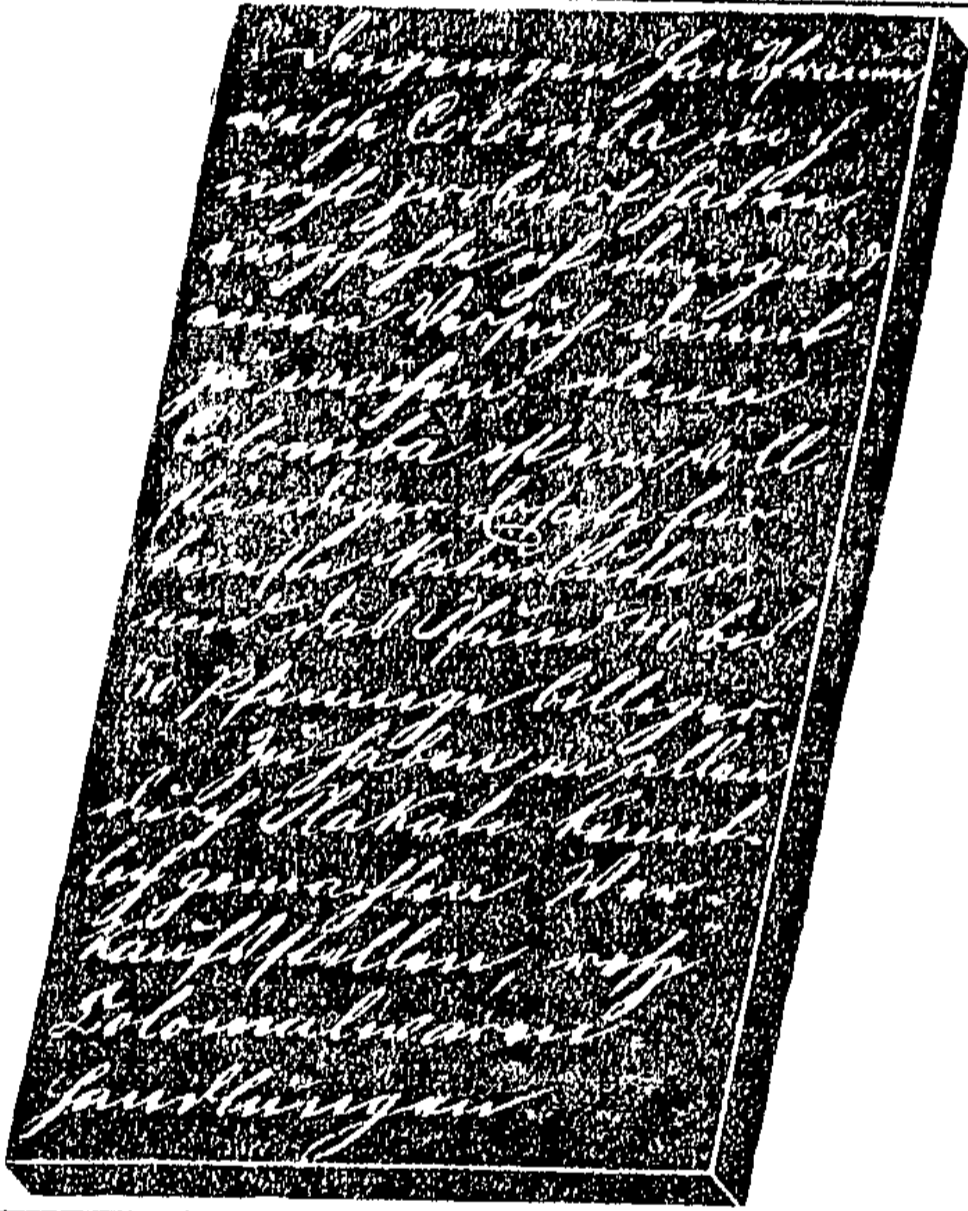 Denjenigen Hausfrauen
welche Colomba noch
nicht probiert haben,
empfehle ich dringend
einen Versuch damit
zu machen, denn
Colomba ist ein voll-
ständiger Ersatz für
beste Naturbutter
und das Pfund 40 bis
50 Pfennige billiger.
Zu haben in allen
durch Plakate kennt-
lich gemachten Ver-
kaufsstellen, resp.
Colonialwaaren
handlungen.